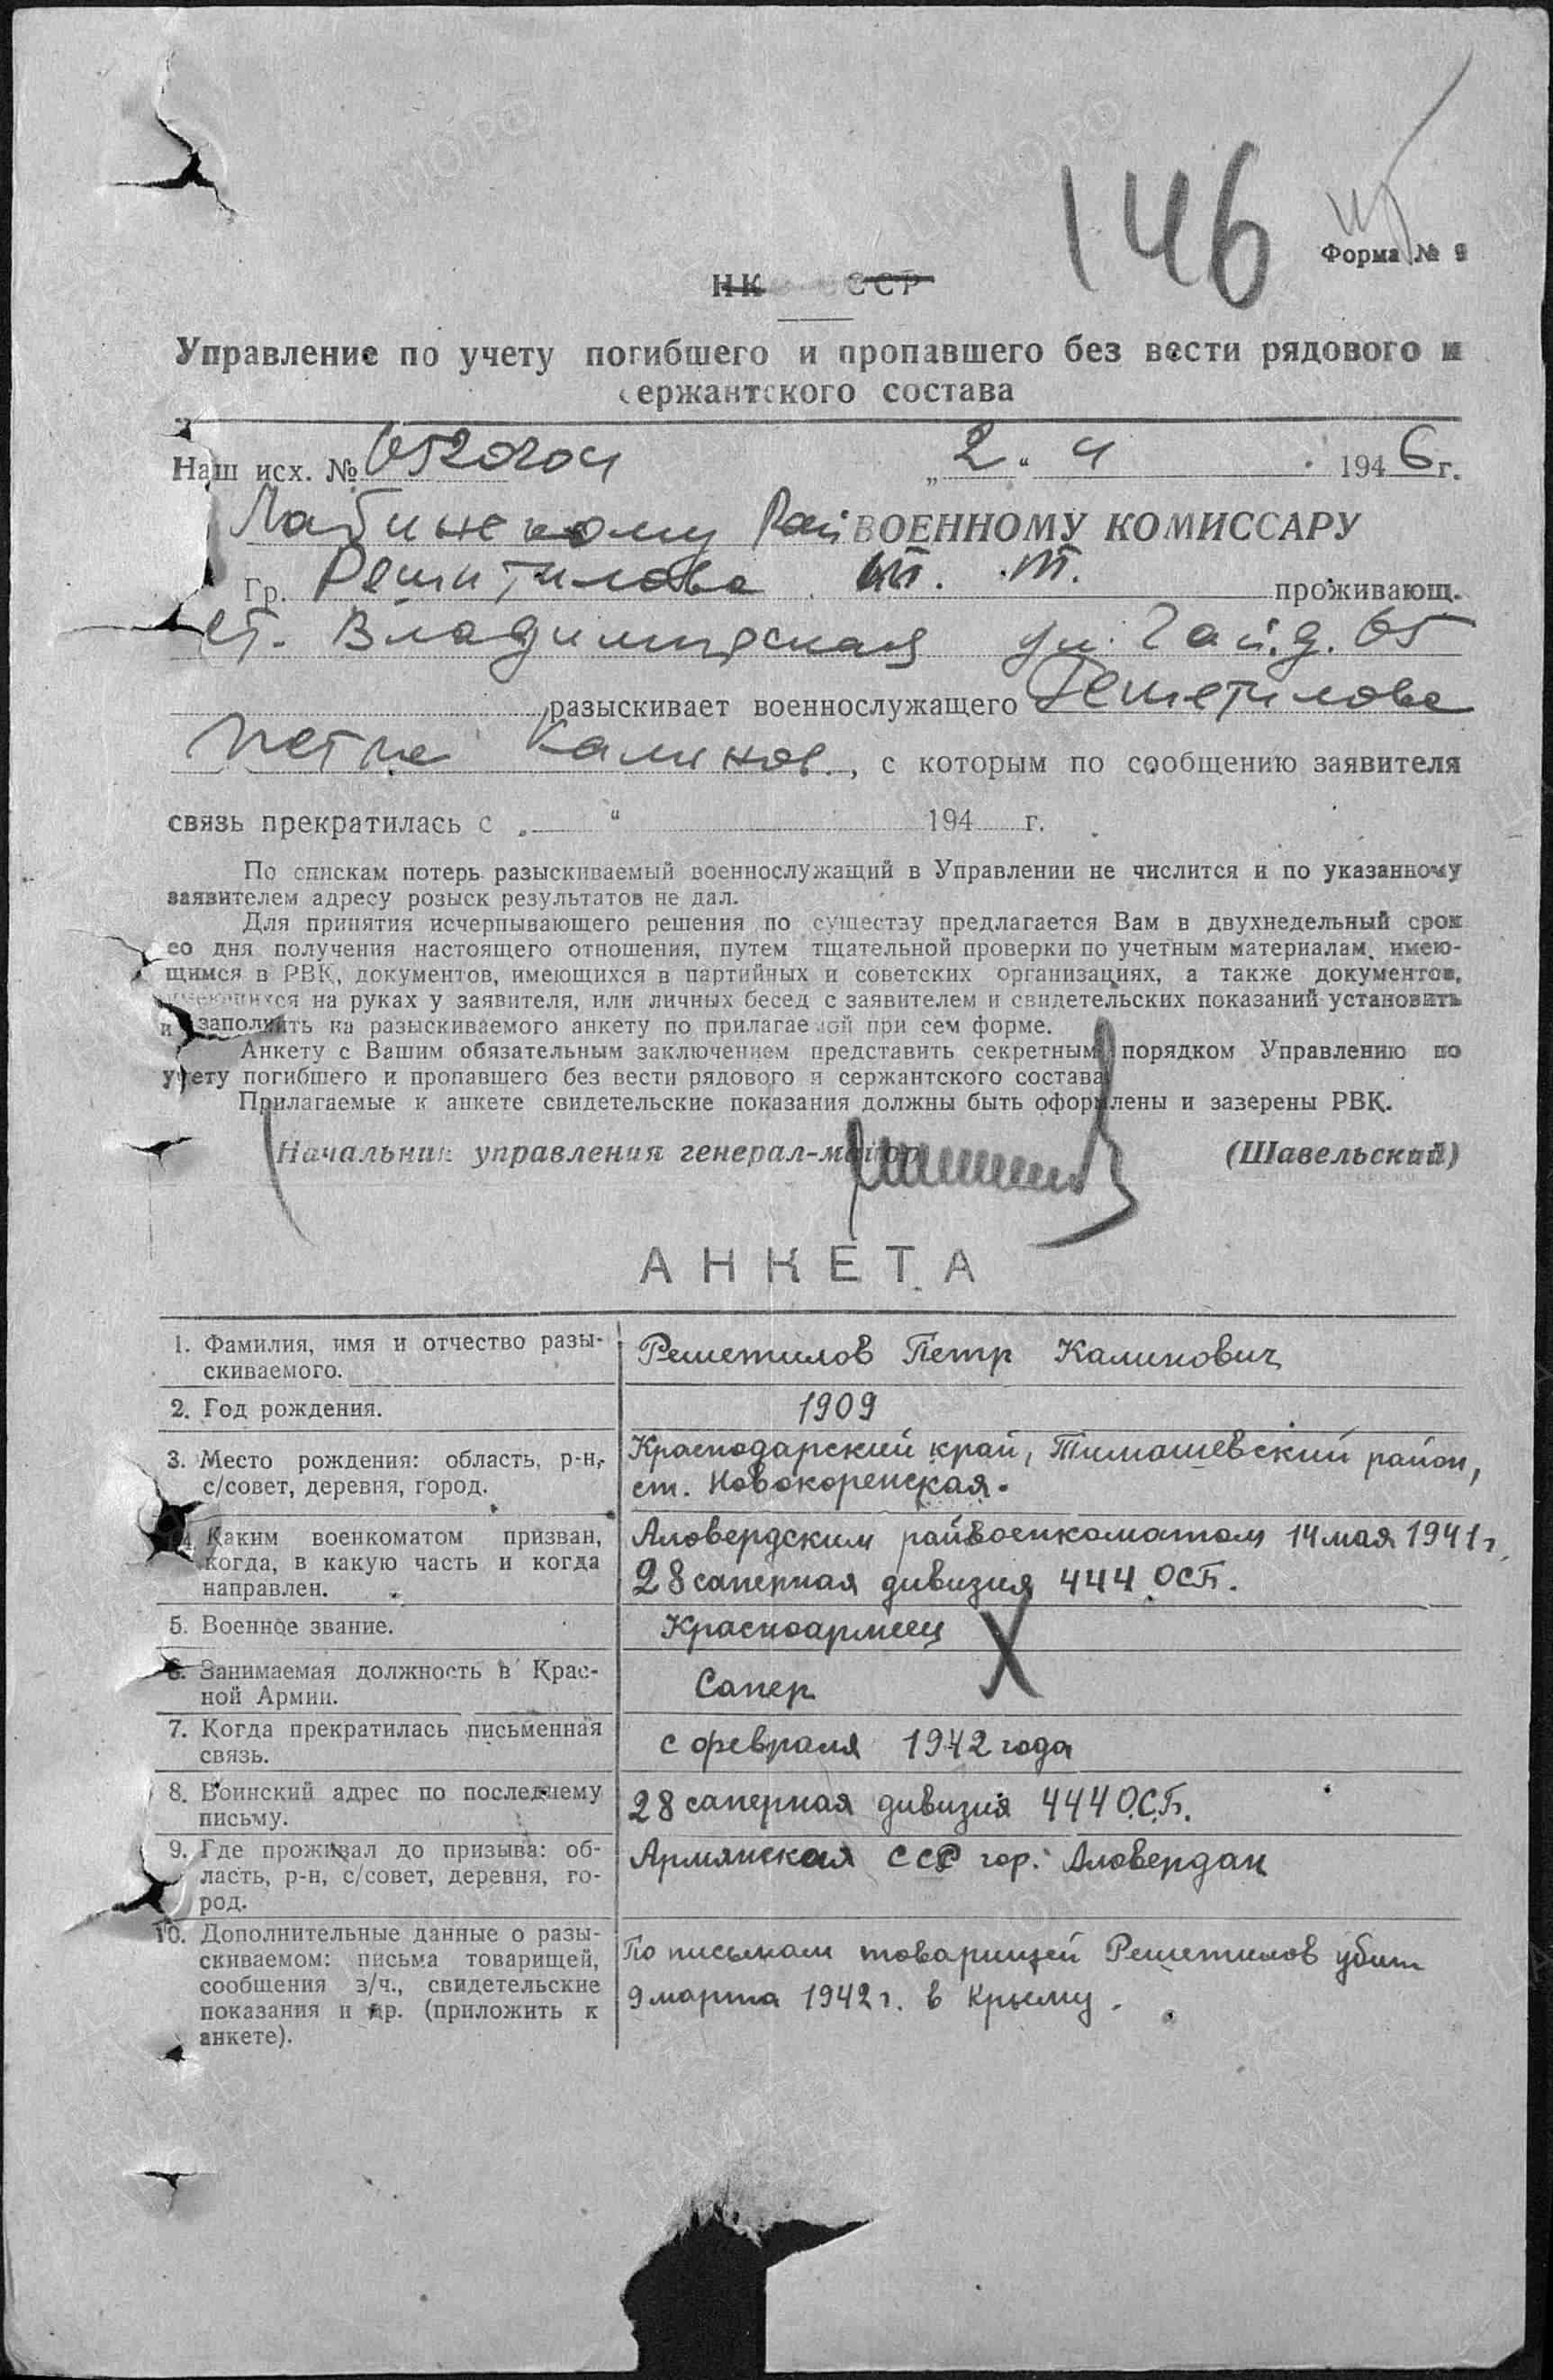 146
Форма № 9
НК СССР
Управление по учету погибшего и пропавшего без вести рядового и
сержантского состава
Наш исх. № 652020ч „2" 4 1946 г.
Лабинскому Рай ВОЕННОМУ КОМИССАРУ
Гр. проживающ.
ст. Владимирская ул. 65
разыскивает военнослужащего Решетилова
Петра Калинов., с которым по сообщению заявителя
связь прекратилась с „ " 194 г.
По спискам потерь разыскиваемый военнослужащий в Управлении не числится и по указанному
заявителем адресу розыск результатов не дал.
Для принятия исчерпывающего решения по существу предлагается Вам в двухнедельный срок
со дня получения настоящего отношения, путем тщательной проверки по учетным материалам, имею-
щимся в РВК, документов, имеющихся в партийных и советских организациях, а также документов,
имеющихся на руках у заявителя, или личных бесед с заявителем и свидетельских показаний установить
и заполнить на разыскиваемого анкету по прилагаемой при сем форме.
Анкету с Вашим обязательным заключением представить секретным порядком Управлению по
учету погибшего и пропавшего без вести рядового и сержантского состава
Прилагаемые к анкете свидетельские показания должны быть оформлены и заверены РВК.
Начальник управления генерал-майор (Шавельский)
АНКЕТА
1. Фамилия, имя и отчество разы-
скиваемого.
Решетилов Петр Калинович
2. Год рождения.
1909
3. Место рождения: область, р-н,
с/совет, деревня, город.
Краснодарский край, Тимашевский район,
ст. Новокоренская.
4. Каким военкоматом призван,
когда, в какую часть и когда
направлен.
Аловердским райвоенкоматом 14 мая 1941 г.
28 саперная дивизия 444 ОСБ.
5. Военное звание.
Красноармеец
6. Занимаемая должность в Крас-
ной Армии.
Сапер
7. Когда прекратилась письменная
связь.
с февраля 1942 года
8. Воинский адрес по последнему
письму.
28 саперная дивизия 444 О.С.Б.
9. Где проживал до призыва: об-
ласть, р-н, с/совет, деревня, го-
род.
Армянская ССР гор. Аловердан
10. Дополнительные данные о разы-
скиваемом: письма товарищей,
сообщения з/ч., свидетельские
показания и др. (приложить к
анкете).
По письмам товарищей Решетилов убит
9 марта 1942 г. в Крыму.